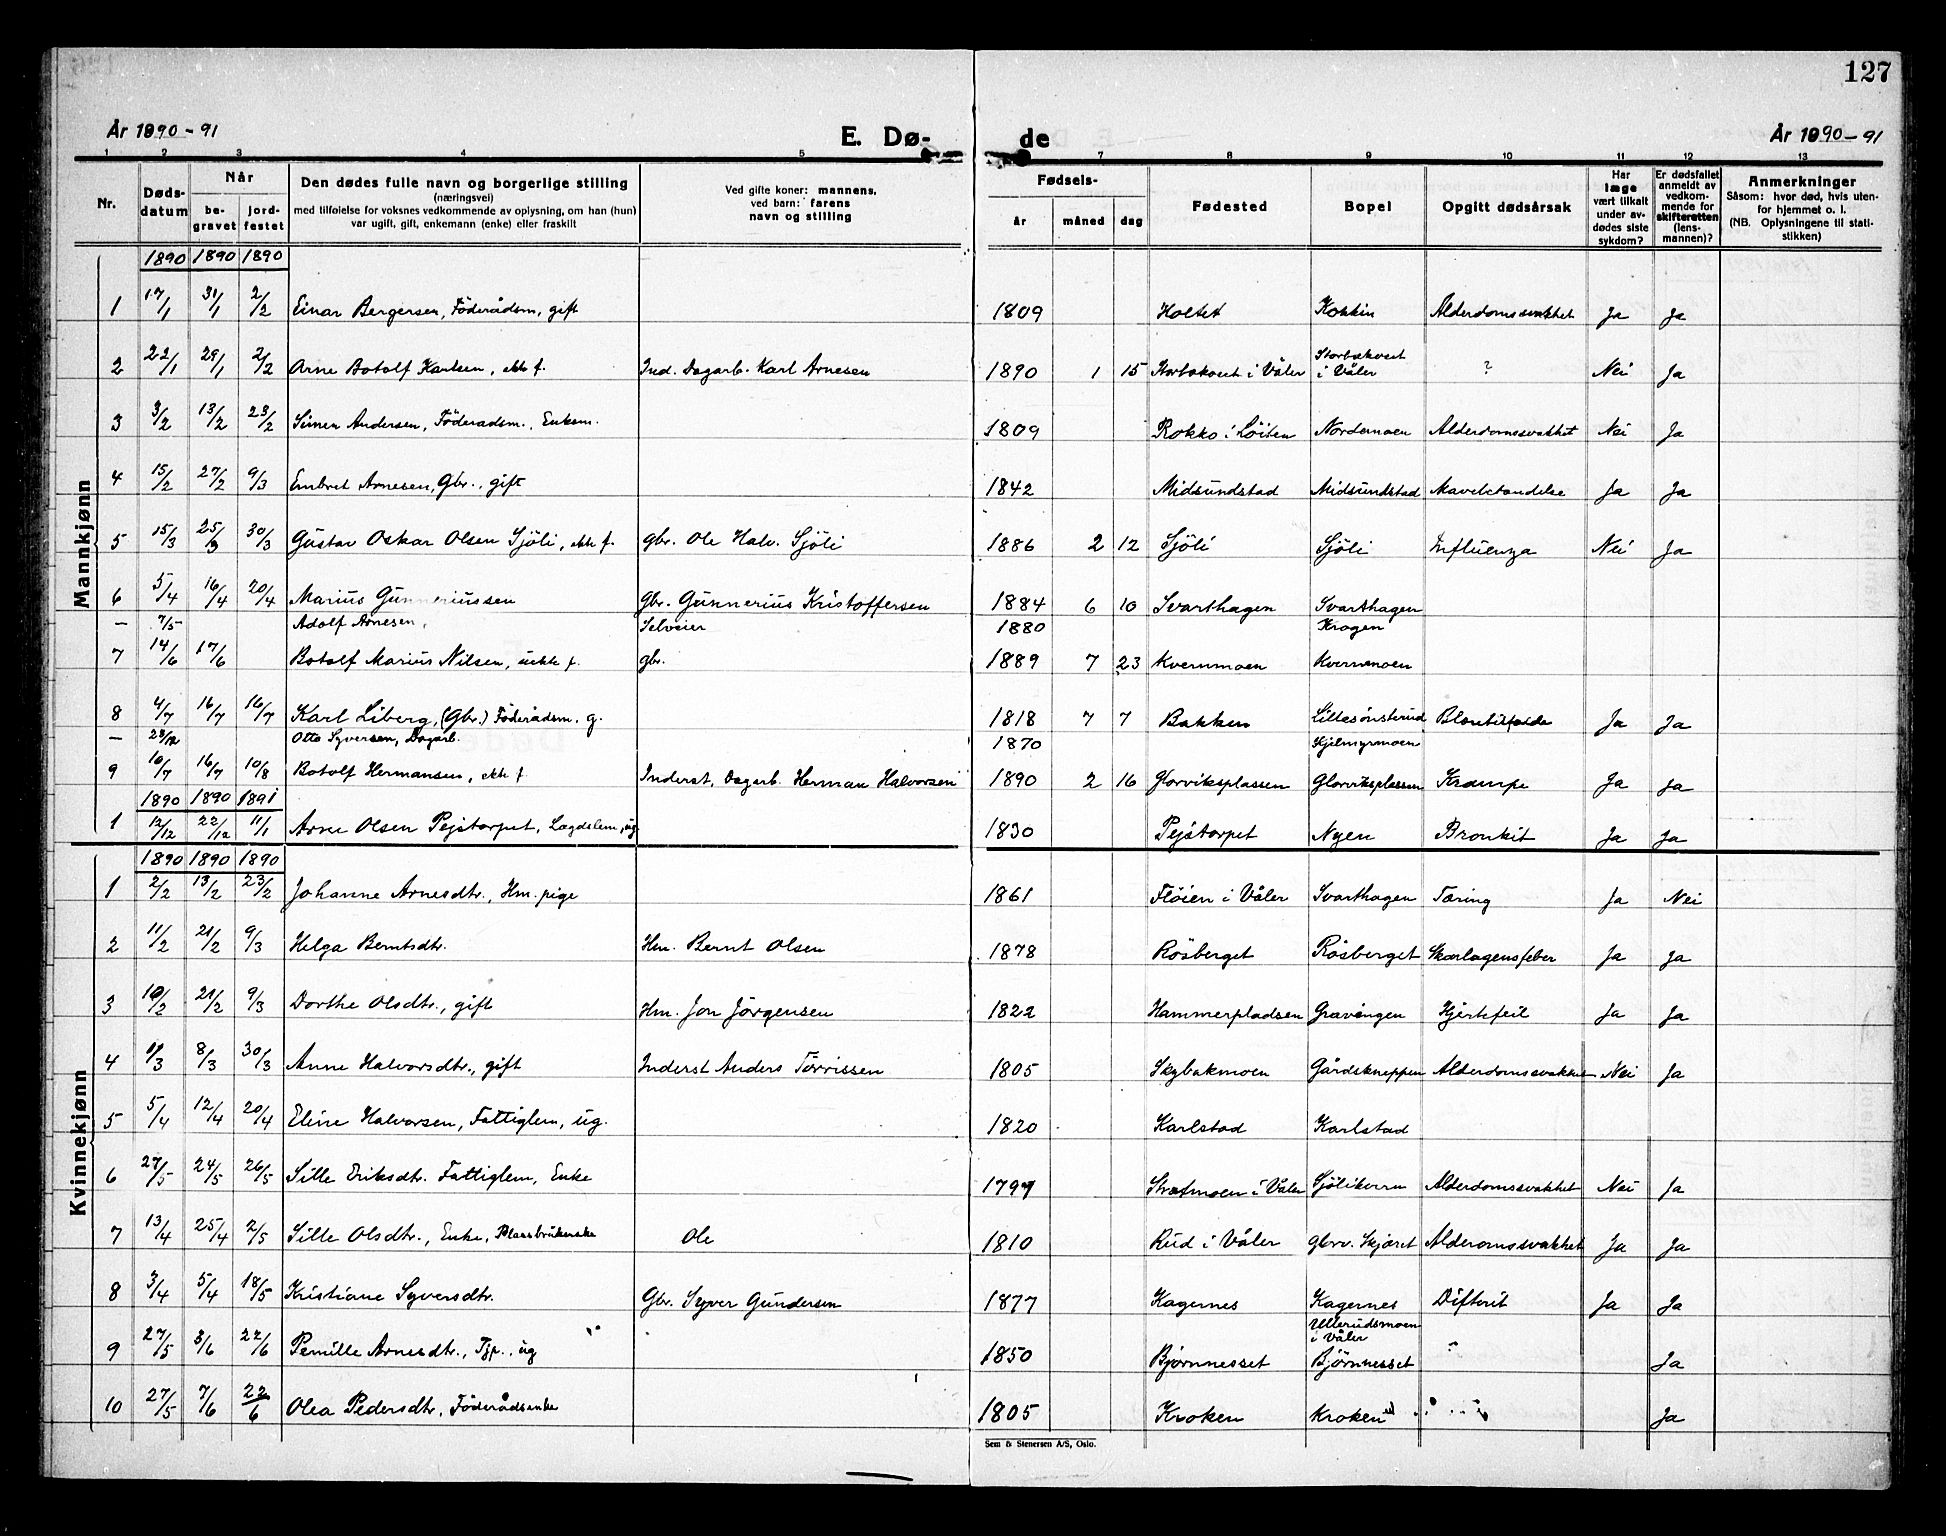 127
År 1890-91
E. Dø-
de
År 1890-91
1 2 3 4 5 7 8 9 10 11 12 13
Nr.
Døds-
datum
Når
be-
gravet
jord-
festet
Den dødes fulle navn og borgerlige stilling
(næringsvei)
med tilføielse for voksnes vedkommende av oplysning, om han (hun)
var ugift, gift, enkemann (enke) eller fraskilt
Ved gifte koner: mannens,
ved barn: farens
navn og stilling
Fødsels-
år måned dag
Fødested
Bopel
Opgitt dødsårsak
Har
læge
vært tilkalt
under av-
dødes siste
sykdom?
Er dødsfallet
anmeldt av
vedkom-
mende for
skifteretten
(lens-
mannen)?
Anmerkninger
Såsom: hvor død, hvis uten-
for hjemmet o. l.
(NB. Oplysningene til stati-
stikken)
Mannkjønn
1890 1890 1890
1 17/1 31/1 2/2 Einar Bergersen, Föderådsm, gift 1809 Holtet Kokkin Alderdomssvakhet Ja Ja
2 22/1 29/1 2/2 Arne Botolf Karlsen, ekte f. Ind. Dagarb. Karl Arnesen 1890 1 15 i Våler Storbekvset i Våler ? Nei Ja
3 3/2 13/2 23/2 Simen Andersen, Föderadsm., Enkem. 1809 Rokko i Löiten Nordemoen Alderdomssvakhet Nei Ja
4 15/2 27/2 9/3 Embret Arnesen, Gbr., gift 1842 Midsundstad Midsundstad Mavebetendelse Ja Ja
5 15/3 25/3 30/3 Gustav Oskar Olsen Sjöli, ekte f. gbr. Ole Halv. Sjöli 1886 2 12 Sjöli Sjöli Influenza Nei Ja
6 5/4 16/4 20/4 Marius Gunneriussen Gbr. Gunnerius Kristoffersen 1884 6 10 Svarthagen Svarthagen
— 7/5 Adolf Arnesen, Selveier 1880 Kragen
7 14/6 17/6 Botolf Marius Nilsen, uekte f. gbr. 1889 7 23 Kvernmoen Kvernmoen
8 4/7 16/7 16/7 Karl Liberg, (Gbr.) Föderådsm. g. 1818 7 7 Bakken Lillesönsterud Ja Ja
— 28/12 Otto Syversen, Dagarb. 1870 Hjelmyrmoen
9 10/7 16/7 10/8 Botolf Hermansen, ekte f. Inderst, Dagarb. Herman Halvorsen 1890 2 16 Glorviksplassen Glorviksplassen Krampe Ja Ja
1890 1890 1891
1 12/12 22/12 11/1 Arne Olsen Pejstorpet, Lægdslem, ug. 1830 Pejstorpet Nyen Bronkit Ja Ja
Kvinnekjønn
1890 1890 1890
1 2/2 13/2 23/2 Johanne Arnesdtr., Hm. pige 1861 Flöien i Våler Svarthagen Tæring Ja Nei
2 11/2 21/2 9/3 Helga Berntsdtr. Hm. Bernt Olsen 1878 Rösberget Rösberget Skarlagensfeber Ja Ja
3 10/2 21/2 9/3 Dorthe Olsdtr., gift Hm. Jon Jörgensen 1822 Hammerpladsen Gravingen Hjertefeil Ja Ja
4 1/3 8/3 30/3 Anne Halvorsdtr., gift Inderst Anders Törrissen 1805 Skybakmoen Gårdskneppen Alderdomssvakhet Nei Ja
5 5/4 12/4 20/4 Eline Halvorsen, Fattiglem, ug. 1820 Karlstad Karlstad
6 27/5 24/5 26/5 Sille Eriksdtr. Fattiglem, Enke 1797 i Våler Alderdomssvakhet Nei Ja
7 13/4 25/4 2/5 Sille Olsdtr., Enke, Plassbrukerske Ole 1810 Rud i Våler Glorv. Skjæret Alderomssvakhet Ja Ja
8 3/4 5/4 18/5 Kristiane Syversdtr. Gbr. Syver Gundersen 1877 Kagernes Kagernes Difterit Ja Ja
9 27/5 3/6 22/6 Pernille Arnesdtr., Tjp., ug 1850 Bjørnnesset Ullerudsmoen i Våler Bjørnnesset Ja
10 27/5 7/6 22/6 Olea Pedersdtr, Föderådsenke 1805 Kroken Kroken Ja
Sem & Stenersen A/S, Oslo.